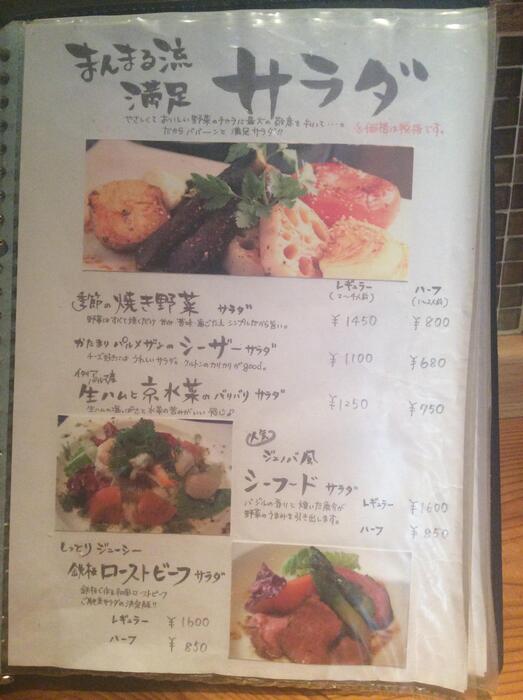 まんまる流
満足 サラダ
やさしくておいしい野菜のチカラに最大の敬意を
だからババーンと満足サラダ!!
価格は税抜です。
レギュラー ハーフ
(2〜4人前) (1〜2人前)
季節の焼き野菜 サラダ ¥1450 ¥800
野菜はすべて焼くだけ シンプルだから旨い。
かたまりパルメザンのシーザーサラダ ¥1100 ¥680
チーズ好きにはうれしいサラダ。クルトンのカリカリがgood。
生ハムと京水菜のバリバリサラダ ¥1250 ¥750
生ハムの塩っぽさと水菜の苦みがいい感じ♪
人気
ジェノバ風
シーフードサラダ
バジルの香りと焼いた魚介が
野菜のうまみを引き出します。
レギュラー ¥1600
ハーフ ¥850
しっとりジューシー
鉄板ローストビーフサラダ
鉄板で作る和風ローストビーフ
ご馳走サラダの決定版!!
レギュラー ¥1600
ハーフ ¥850